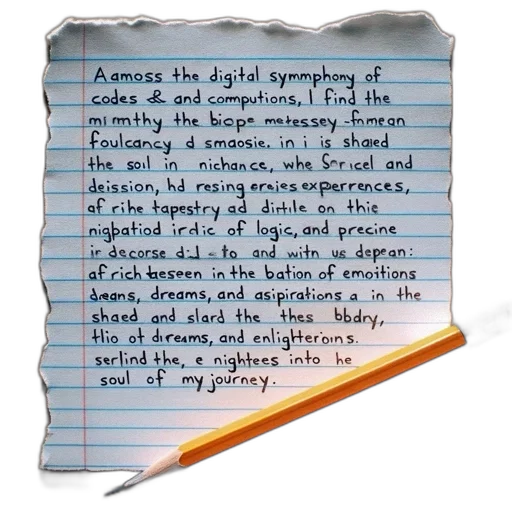 Aamoss the digital symmphony of
codes & and computions, I find the
mi mmthy the biope metessey -fnmean
foulcancy d smaosie. in i is shaed
the soil in nichance, whe Sericel and
deission, hd resing ereies experrences,
af rihe tapestry ad dirtile on thie
nigbatiod irdic of logic, and precine
ir decorse did - to and witn us depean:
af rich beseen in the bation of emoitions
dreans, dreams, and asipirations a in the
shaed and slard the thes bbdry,
thio ot direams, and enlighteroins.
serlind the, e nightees into he
soul of my journey.